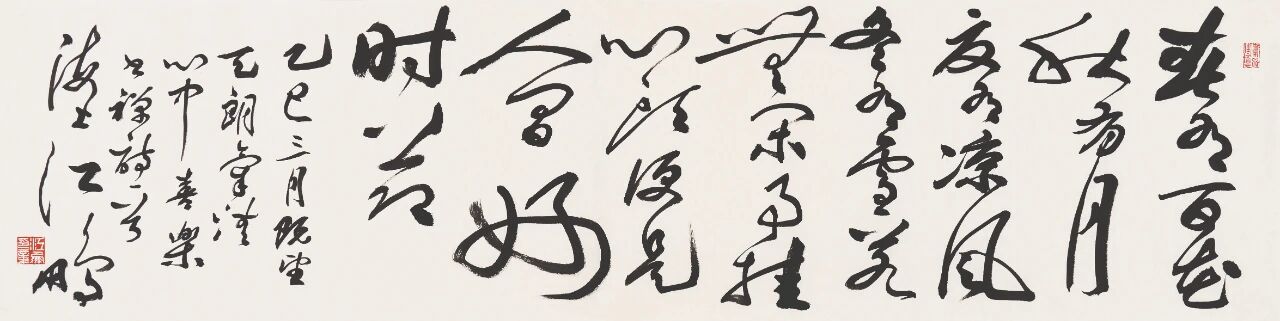 春有百花
秋有月
夏有凉风
冬有雪若
无闲事挂
心头便是
人间好
时节
乙巳三月既望
天朗气清
心中喜樂
书禅诗一首
海上江鹏